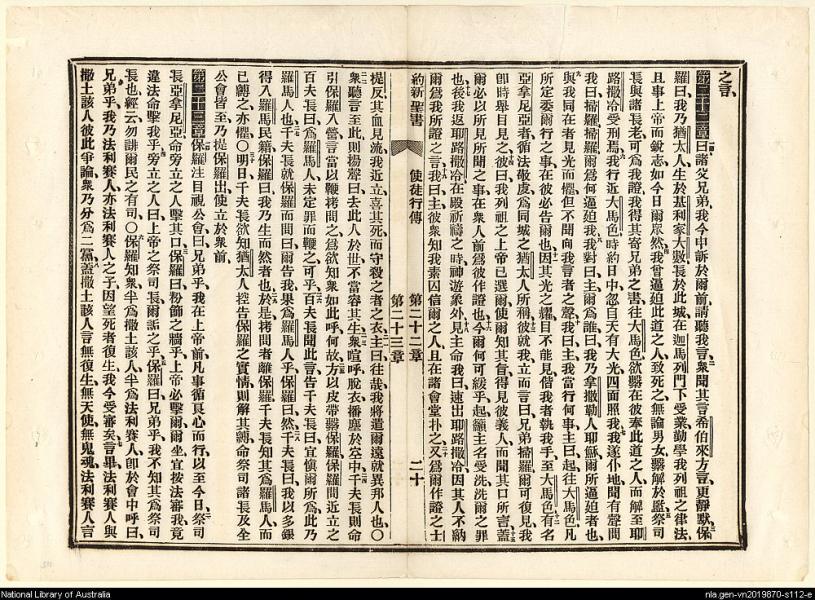 之言、
第二十二章曰、諸父兄弟、我今申訴於爾前、請聽我言、衆聞其言希伯來方言、更靜默、保
羅曰、我乃猶太人、生於基利家大數、長於此城、在迦馬列門下受業、勤學我列祖之律法、
且事上帝而銳志、如今日爾衆然、我曾逼迫此道之人致死之、無論男女、繫解於監、祭司
長與諸長老、可爲我證、我得其寄兄弟之書、往大馬色、欲繫在彼奉此道之人而解至耶
路撒冷受刑焉、我行近大馬色、時約日中、忽自天有大光、四面照我、我遂仆地、聞有聲問
我曰、掃羅掃羅、爾爲何逼迫我、我對曰、主爾爲誰、曰、我乃拿撒勒人耶穌、爾所逼迫者也、
與我同在者、見光而懼、但不聞向我言者之聲、我曰、主我當行何事、主曰、起往大馬色、凡
所定委爾行之事、在彼必告爾也、因其光之耀、目不能見、偕我者執我手、至大馬色、有名
亞拿尼亞者、循法敬虔、爲同城之猶太人所稱、彼就我立而言曰、兄弟掃羅、爾可復見、我
卽時舉目見之、彼曰、我列祖之上帝已選爾、使爾知其旨、得見彼義人、而聞其口所言、蓋
爾必以所見所聞之事、在衆人前爲彼作證也、今爾何可緩乎、起籲主名、受洗洗爾之罪
也、後我返耶路撒冷、在殿祈禱之時、神遊象外、見主命我曰、速出耶路撒冷、因其人不納
爾爲我所證之言、我曰、主、彼衆知我素囚信爾之人、且在諸會堂扑之、又爲爾作證之士
約新聖書
使徒行傳
第二十二章
第二十三章
二十
提反、其血見流、我近立喜其死、而守殺之者之衣、主曰、往哉、我將遣爾遠就異邦人也、○
衆聽言至此、則揚聲曰、去此人於世、不當容其生、衆喧呼、脫衣播塵於空中、千夫長則命
引保羅入營、言當以鞭拷問之、爲欲知衆如此呼何故、方以皮帶繫保羅、保羅問近立之
百夫長曰、爲羅馬人、未定罪而鞭之可乎、百夫長聞此言、告千夫長曰、宜愼爾所爲、此乃
羅馬人也、千夫長就保羅而問曰、爾告我、果爲羅馬人乎、保羅曰、然、千夫長曰、我以多銀
得入羅馬民籍、保羅曰、我乃生而然者也、於是拷問者離保羅、千夫長知其爲羅馬人、而
已縛之、亦懼、○明日千夫長欲知猶太人控告保羅之實情、則解其縛、命祭司諸長及全
公會皆至、乃提保羅出、使立於衆前、
第二十三章保羅注目視公會曰、兄弟乎、我在上帝前、凡事循良心而行、以至今日、祭司
長亞拿尼亞、命旁立之人擊其口、保羅曰、粉飾之牆乎、上帝必擊爾、爾坐宜按法審我、竟
違法命擊我乎、旁立之人曰、上帝之祭司長、爾詬之乎、保羅曰、兄弟乎、我不知其爲祭司
長也、經云、勿誹爾民之有司、○保羅知衆半爲撒土該人、半爲法利賽人、卽於會中呼曰、
兄弟乎、我乃法利賽人、亦法利賽人之子、因望死者復生、我今受審矣、言畢、法利賽人與
撒土該人彼此爭論、衆乃分爲二黨、蓋撒土該人言無復生、無天使、無鬼魂、法利賽人言
National Library of Australia
nla.gen-vn2019870-s112-e